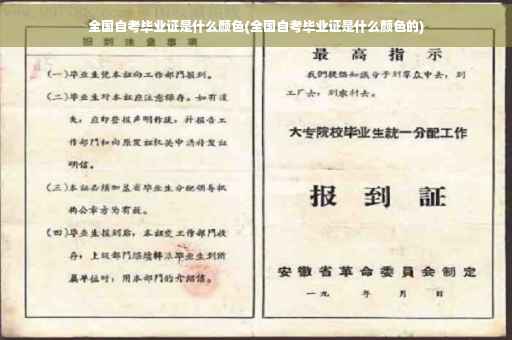 全国自考毕业证是什么颜色(全国自考毕业证是什么颜色的)
报到注意事项
(一)毕业生凭本证向工作部门报到。
(二)毕业生对本证应注意保存。如有遗
失,应即登报声明作废,并报告工
作部门和向原发证机关申请补发证
明信。
(三)本证必须加盖省毕业生分配领导机
构公章方为有效。
(四)毕业生报到后,本证交工作部门收
存,上级部门
毕业生到所
属单位时,用本部门的介绍信。
最高指示
我们提倡知识分子到群众中去,到
工厂去,到农村去。
大专院校毕业生统一分配工作
报到证
安徽省革命委员会制定
一九 年 月 日